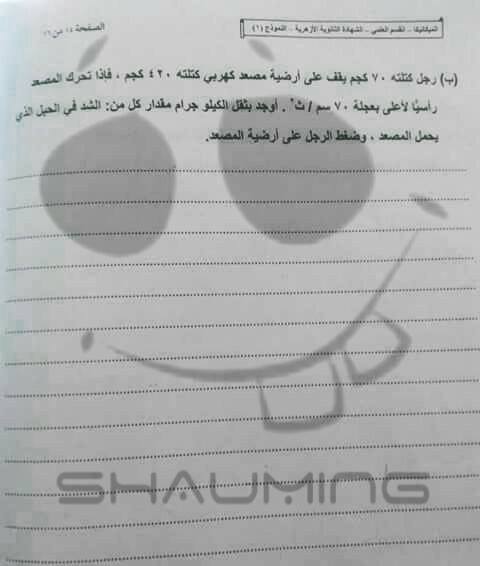 الميكانيكا - القسم العلمي - الشهادة الثانوية الأزهرية - النموذج (١)
الصفحة ١٤ من
(ب) رجل كتلته ٧٠ كجم يقف على أرضية مصعد كهربي كتلته ٤٢٠ كجم ، فإذا تحرك المصعد
رأسيًا لأعلى بعجلة ٧٠ سم / ث٢ . أوجد بثقل الكيلو جرام مقدار كل من: الشد في الحبل الذي
يحمل المصعد ، وضغط الرجل على أرضية المصعد.
SHAUMING